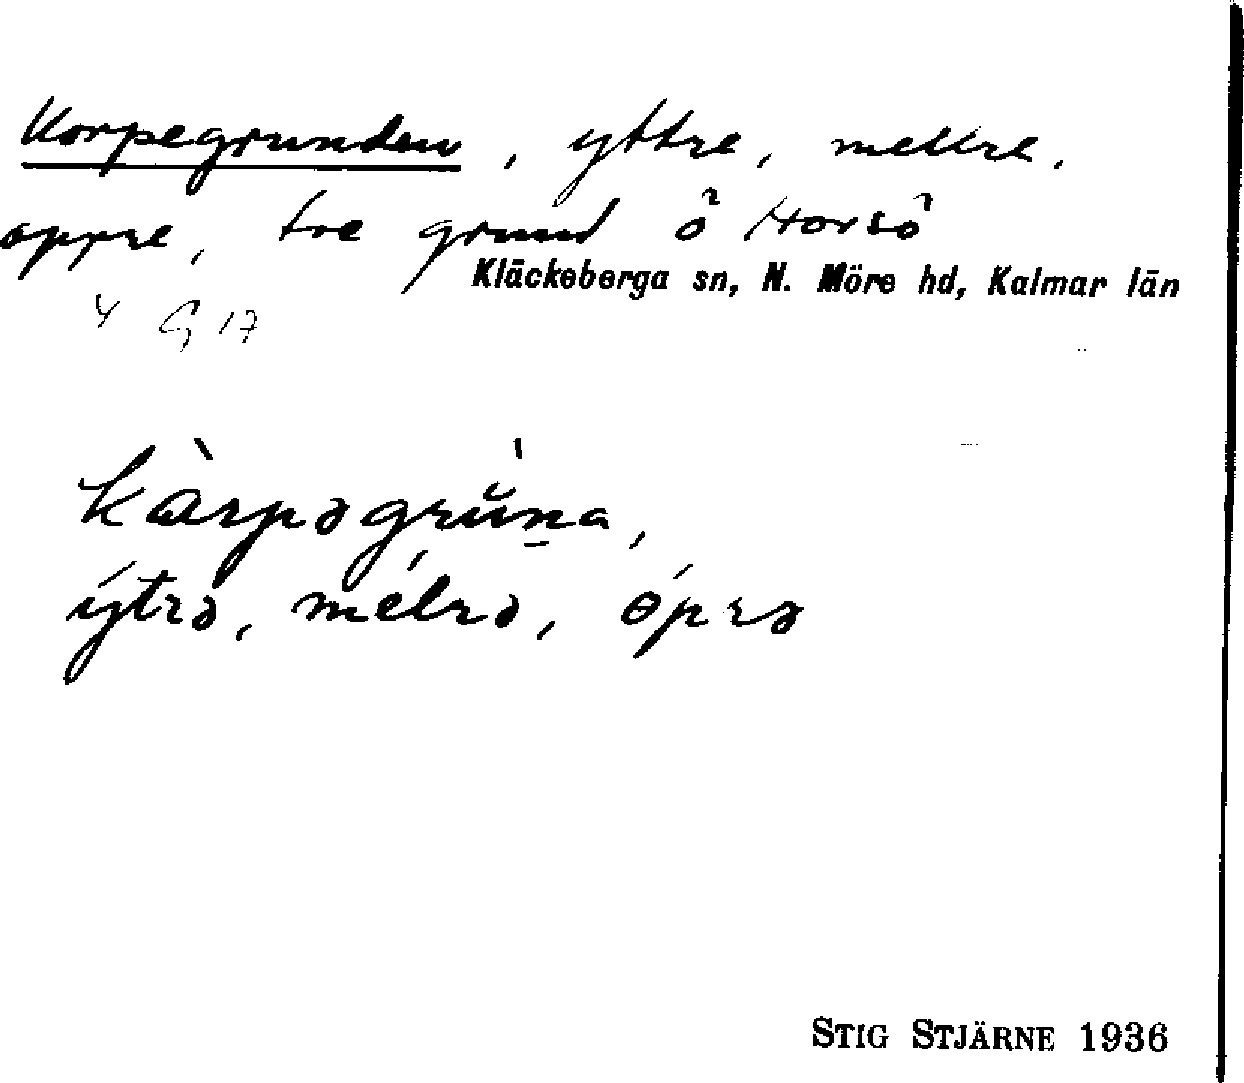 Korpegrunden, yttre, mellre,
oppre, tre grund ö Horsö
Kläckeberga sn, N. Möre hd, Kalmar län
4 G 17
kàrpəgrŭṉa,
ýtrə, mélrə, óprə
STIG STJÄRNE 1936